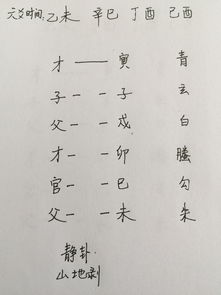 灾时间:乙未 辛巳 丁酉 己酉
才 — 寅 青
子 - - 子 玄
父 - - 戍 白
才 - - 卯 螣
官 - - 巳 勾
父 - - 未 朱
静卦
山地剥